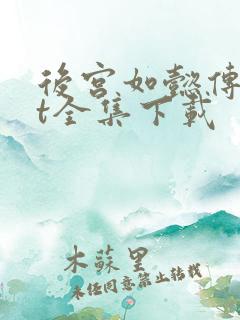 後宮如懿傳
t全集下載
木蘇里
未經同意禁止轉載